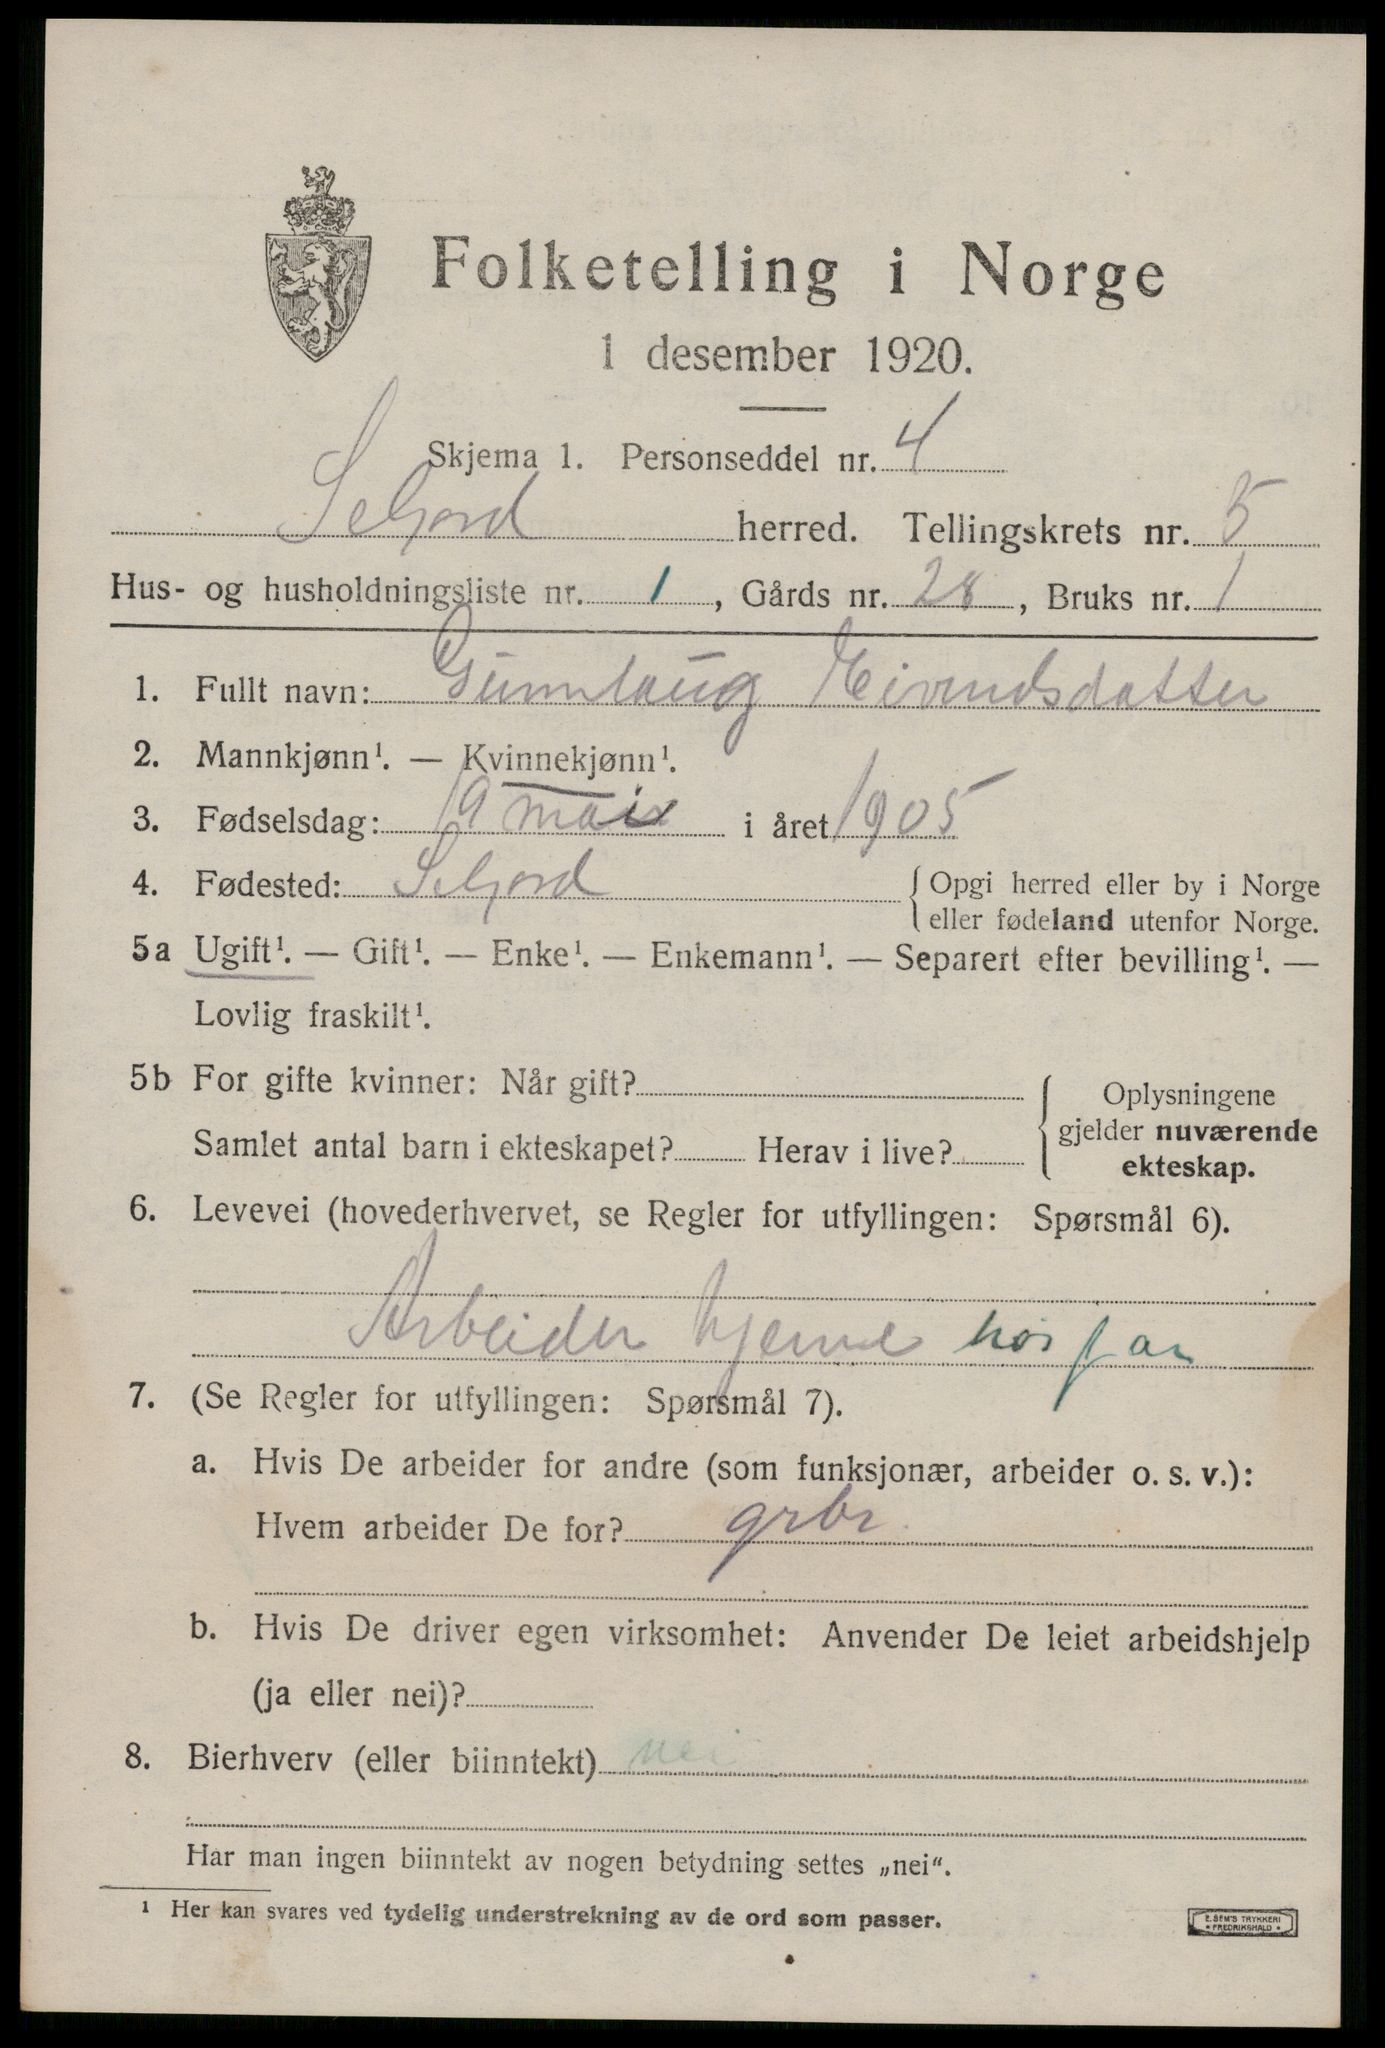 Folketelling i Norge
1 desember 1920.
Skjema 1. Personseddel nr. 4
Seljord herred. Tellingskrets nr. 5
Hus- og husholdningsliste nr. 1, Gårds nr. 28, Bruks nr. 1
1. Fullt navn: Gunnlaug Eivindsdatter
2. Mannkjønn¹. — Kvinnekjønn¹.
3. Fødselsdag: 19 mai i året 1905
4. Fødested: Seljord { Opgi herred eller by i Norge
eller fødeland utenfor Norge.
5a Ugift¹. — Gift¹. — Enke¹. — Enkemann¹. — Separert efter bevilling¹. —
Lovlig fraskilt¹.
5b For gifte kvinner: Når gift? { Oplysningene
gjelder nuværende
Samlet antal barn i ekteskapet? Herav i live? ekteskap.
6. Levevei (hovederhvervet, se Regler for utfyllingen: Spørsmål 6).
Arbeider hjeme hos far
7. (Se Regler for utfyllingen: Spørsmål 7).
a. Hvis De arbeider for andre (som funksjonær, arbeider o. s. v.):
Hvem arbeider De for? grbr.
b. Hvis De driver egen virksomhet: Anvender De leiet arbeidshjelp
(ja eller nei)?
8. Bierhverv (eller biinntekt) nei
Har man ingen biinntekt av nogen betydning settes „nei“.
¹ Her kan svares ved tydelig understrekning av de ord som passer.
E. SEM'S TRYKKERI
* FREDRIKSHALD *